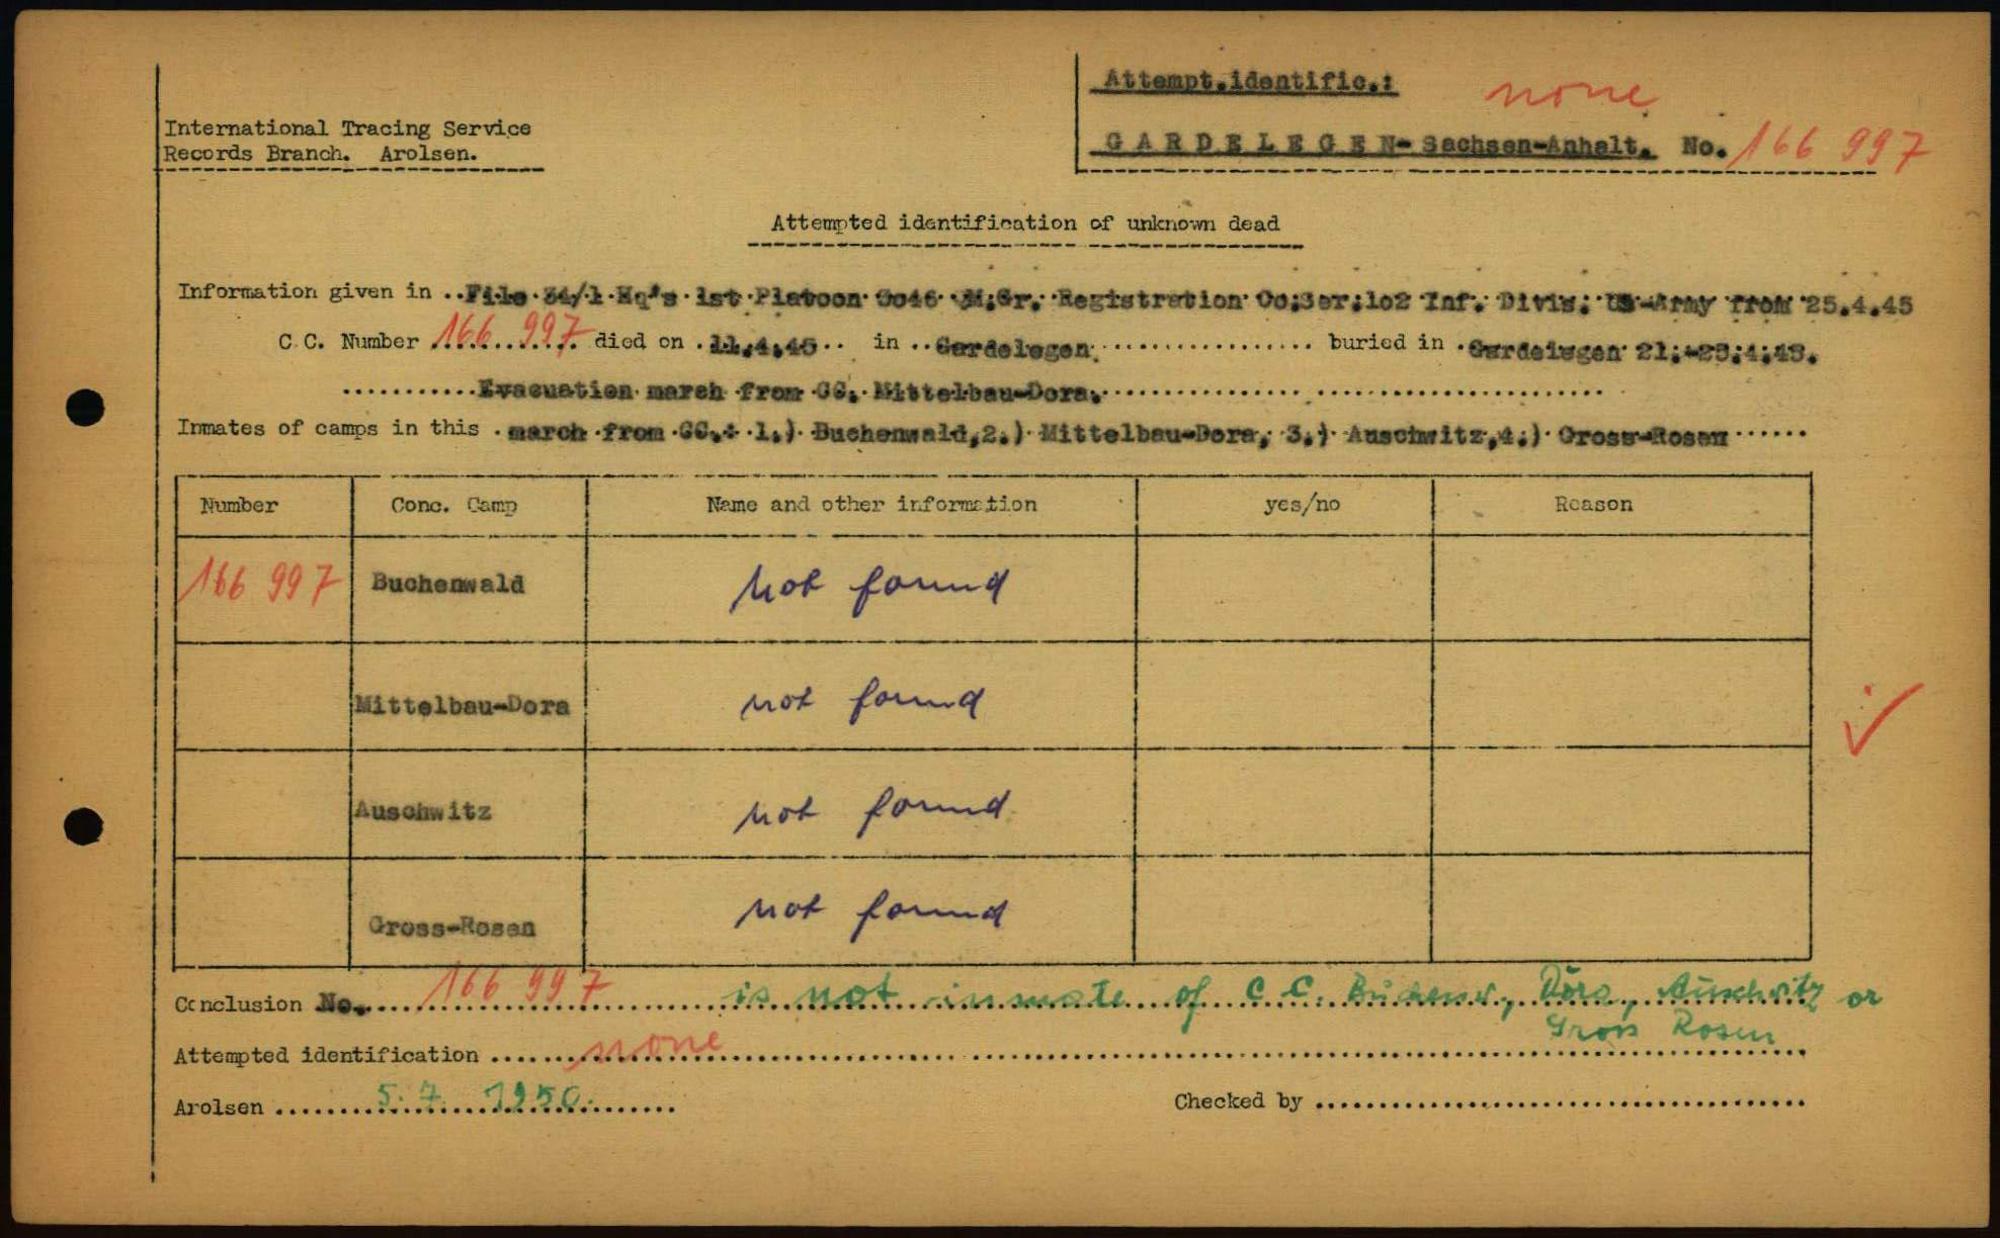 Attempt.identific.: none
International Tracing Service
Records Branch. Arolsen.
G A R D E L E G E N- Sachsen-Anhalt. No. 166 997
Attempted identification of unknown dead
Information given in File 34/1 Hq's 1st Platoon 3046 M.Gr. Registration Co.3er.102 Inf. Divis. US-Army from 25.4.45
C.C. Number 166 997 died on 11.4.45 in Gardelegen buried in Gardelegen 21.-25.4.45.
Evacuation march from CC. Mittelbau-Dora.
Inmates of camps in this march from CC.: 1.) Buchenwald,2.) Mittelbau-Dora, 3.) Auschwitz,4.) Gross-Rosen
Number Conc. Camp Name and other information yes/no Reason
166 997 Buchenwald not found
Mittelbau-Dora not found
Auschwitz not found
Gross-Rosen not found
Conclusion No. 166 997 is not inmate of C.C. Buchenw, Dora, Auschwitz or
Gross Rosen
Attempted identification none
Arolsen 5. 7. 1950. Checked by